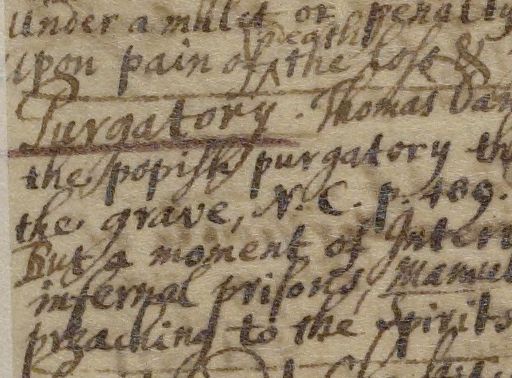 under a mulct or penalty
death
upon pain of ^ the loss &
Purgatory. Thomas
the popish purgatory
the grave, N. C. p. 489.
But a moment of
infernal prisons,
preaching to the Spirits